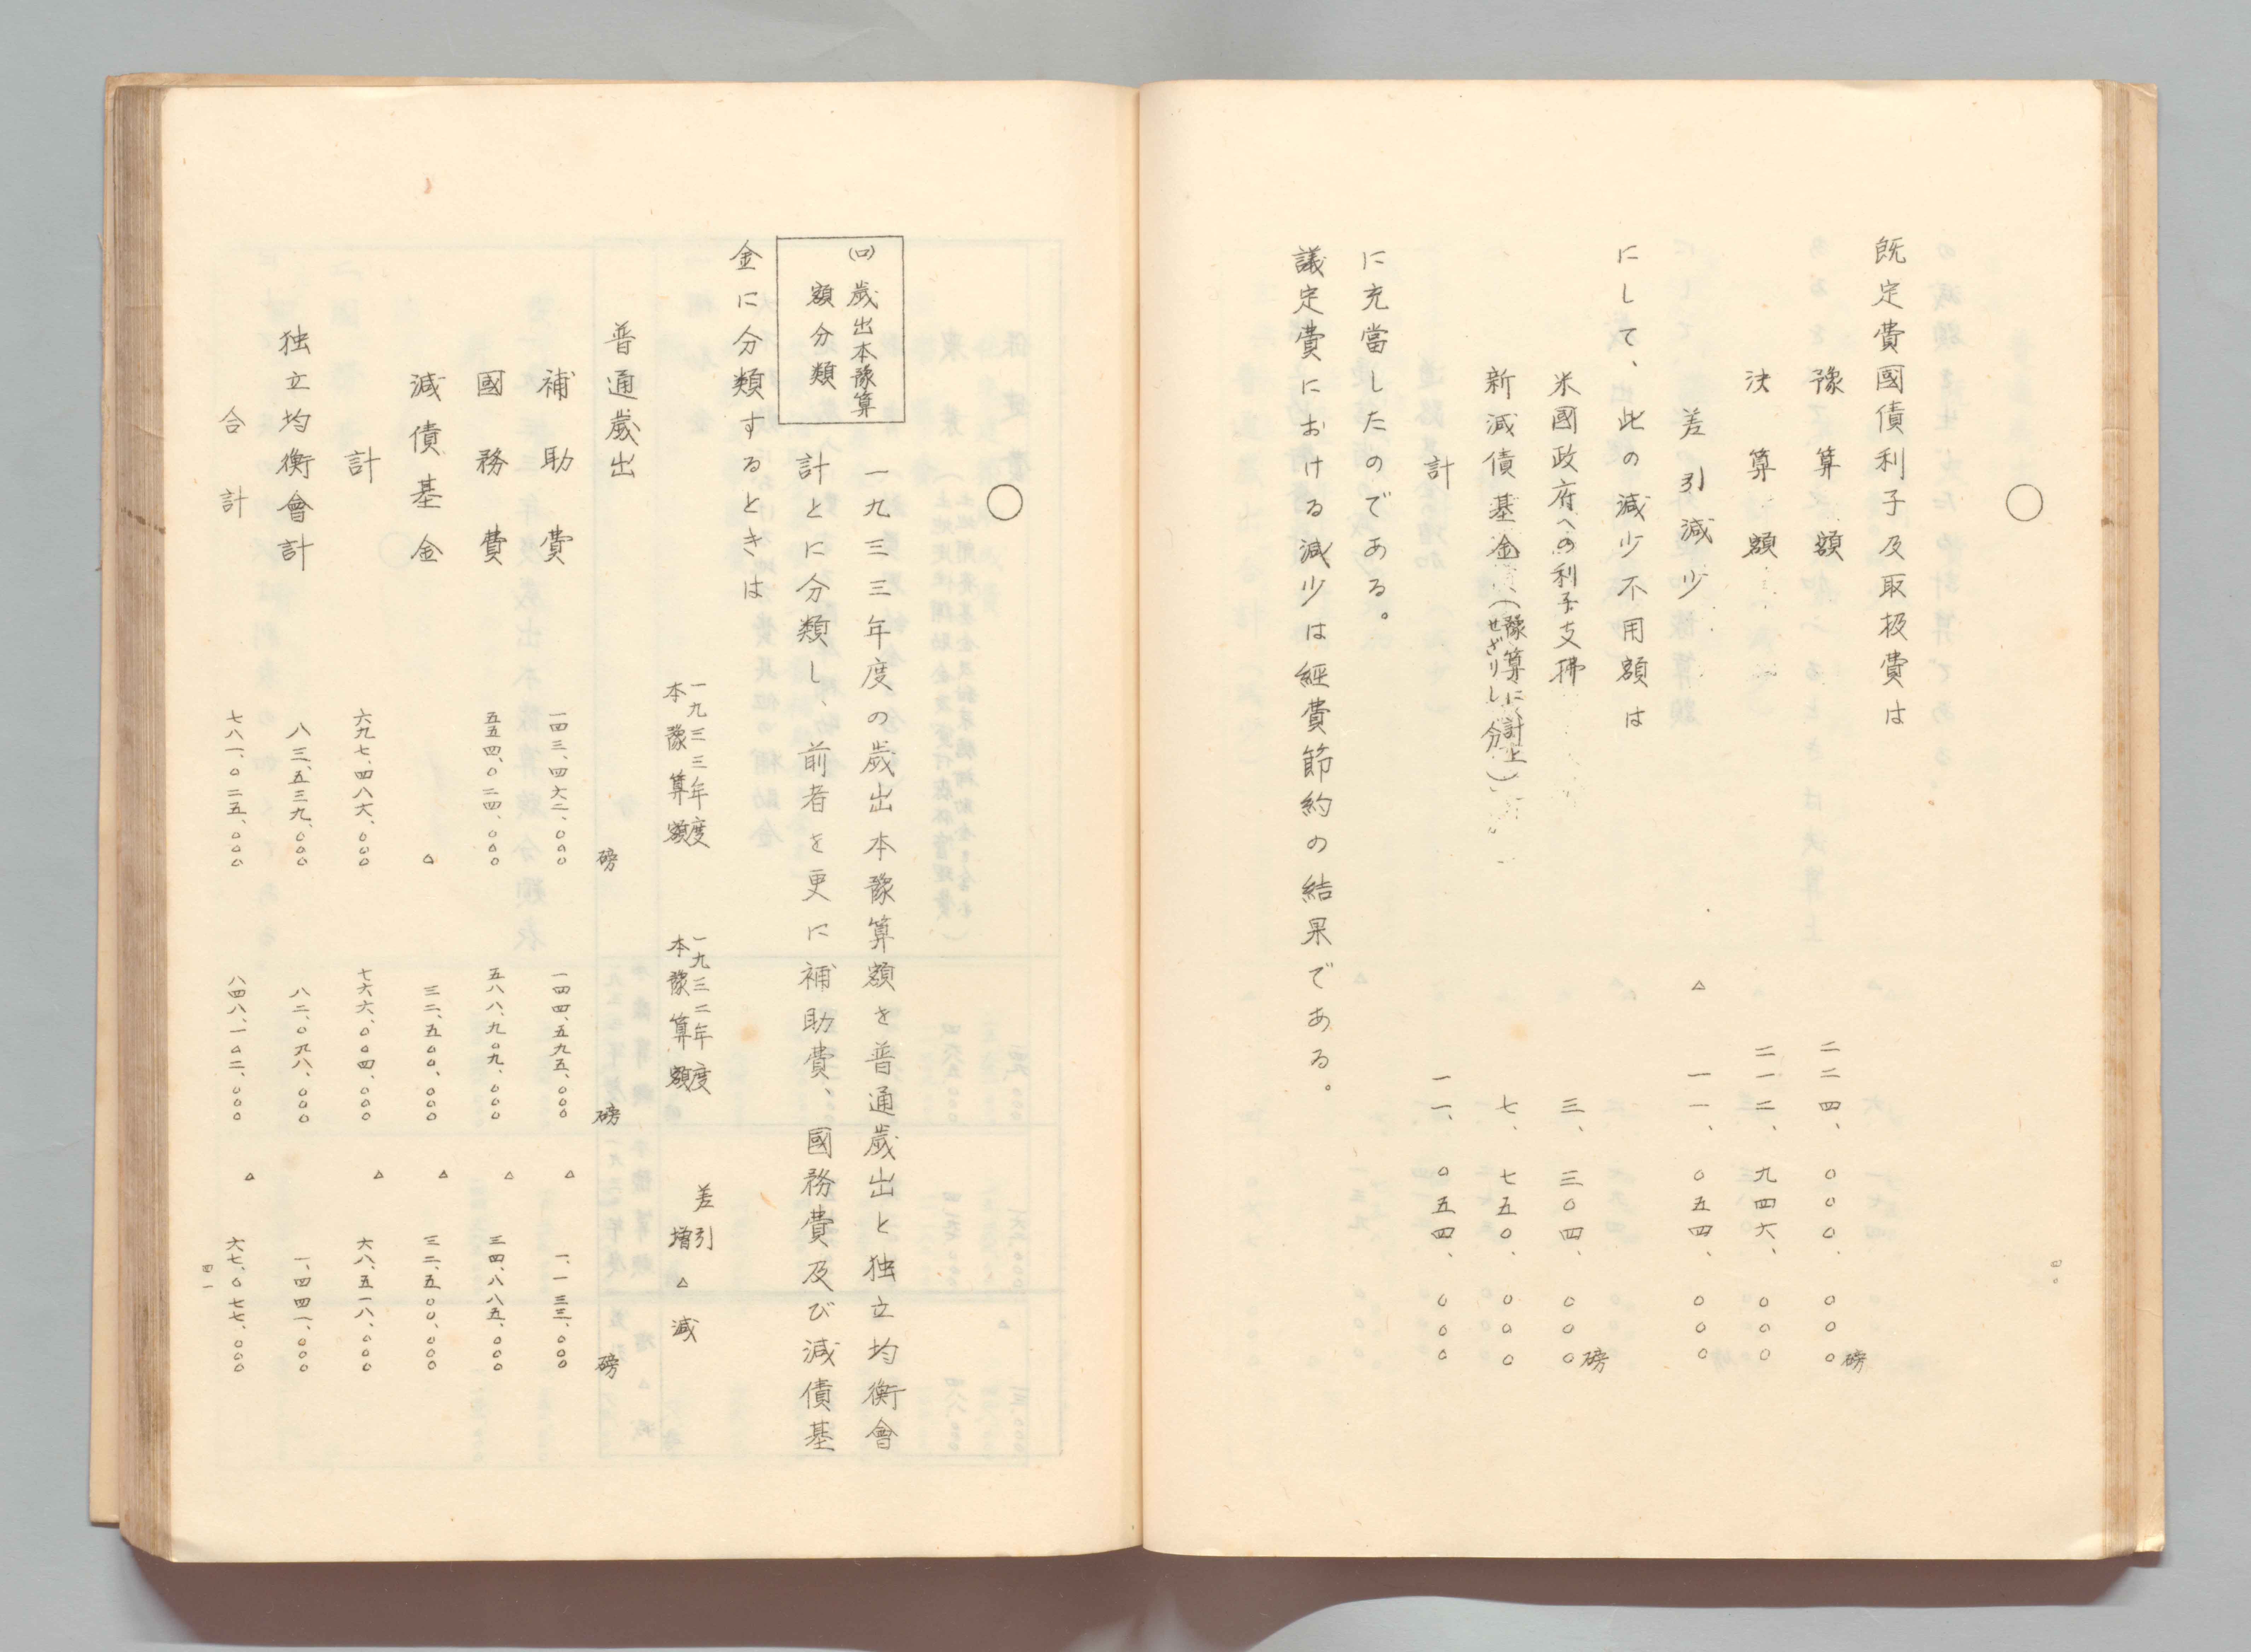 既定費國債利子及取扱費は
豫算額　二二四、〇〇〇、〇〇〇磅
決算額　二一二、九四六、〇〇〇
差引減少　△　一一、〇五四、〇〇〇
にして、此の減少不用額は
米國政府への利子支拂　三、三〇四、〇〇〇磅
新減債基金（豫算に計上せざりし分）　七、七五〇、〇〇〇
計　一一、〇五四、〇〇〇
に充當したのである。
議定費における減少は經費節約の結果である。
四〇
(ロ)歲出本豫算
額分類
一九三三年度の歲出本豫算額を普通歲出と独立均衡會
計とに分類し、前者を更に補助費、國務費及び減債基
金に分類するときは
一九三三年度本豫算額　一九三二年度本豫算額　差引増△減
普通歲出　磅　磅　磅
補助費　一四三、四六二、〇〇〇　一四四、五九五、〇〇〇　△　一、一三三、〇〇〇
國務費　五五四、〇二四、〇〇〇　五八八、九〇九、〇〇〇　△　三四、八八五、〇〇〇
減債基金　△　三二、五〇〇、〇〇〇　△　三二、五〇〇、〇〇〇
計　六九七、四八六、〇〇〇　七六六、〇〇四、〇〇〇　△　六八、五一八、〇〇〇
独立均衡會計　八三、五三九、〇〇〇　八二、〇九八、〇〇〇　一、四四一、〇〇〇
合計　七八一、〇二五、〇〇〇　八四八、一〇二、〇〇〇　△　六七、〇七七、〇〇〇
四一